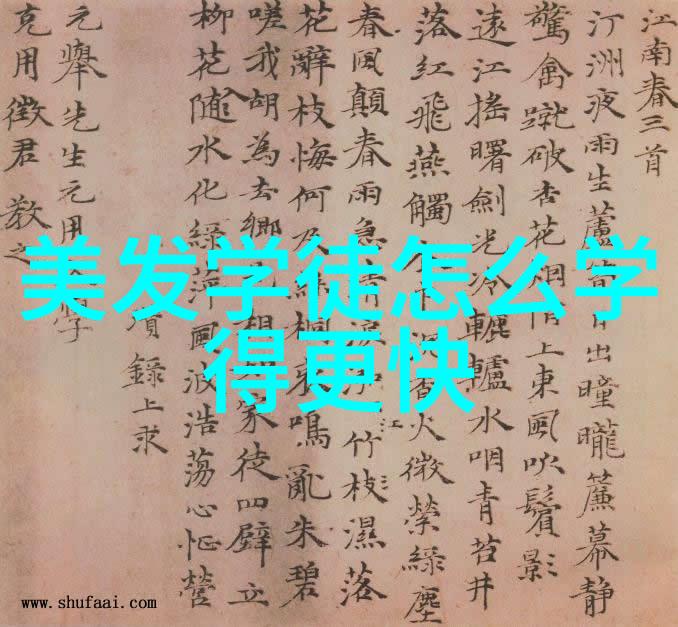 江南春三首
汀洲夜雨生蘆出曈曨簾幕靜
驚禽蹴破杏花烟上東風吹鬢影
遠江搖曙劍光冷轆轤水咽青苔井
落紅飛燕觸香火微縈綠塵
春風顛春雨急清江竹枝濕落
花辭枝悔何及桐哀鳴亂朱碧
嗟我胡為去鄉相家徒四壁立
柳花隨水化綠萍風波浩蕩心怔營
瓚錄上求
元舉先生元用學
克用徵君教之
美发学徒怎么学
得更快
www.shufaai.com